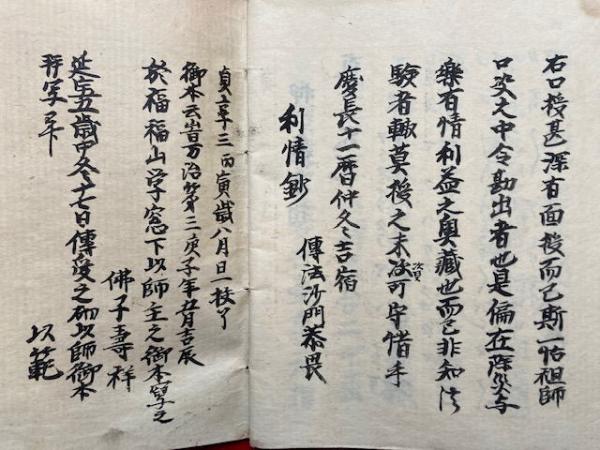 右口授甚深有面授而已斯一帖祖師
口筆之中令勘出者也是偏在除災与
楽有情利益之奥蔵也而已非知法
験者輙莫授之末流可守惜乎
慶長十一暦仲冬吉宿
傳法沙門恭畏
利情鈔
貞享三丙寅歳八月日一校了
御本云昔万治第三庚子年五月吉辰
於福山学窓下以師主之御本写之
佛子壽祥
延宝五歳中冬十七日傳受之砌以師御本
拝写畢
以範